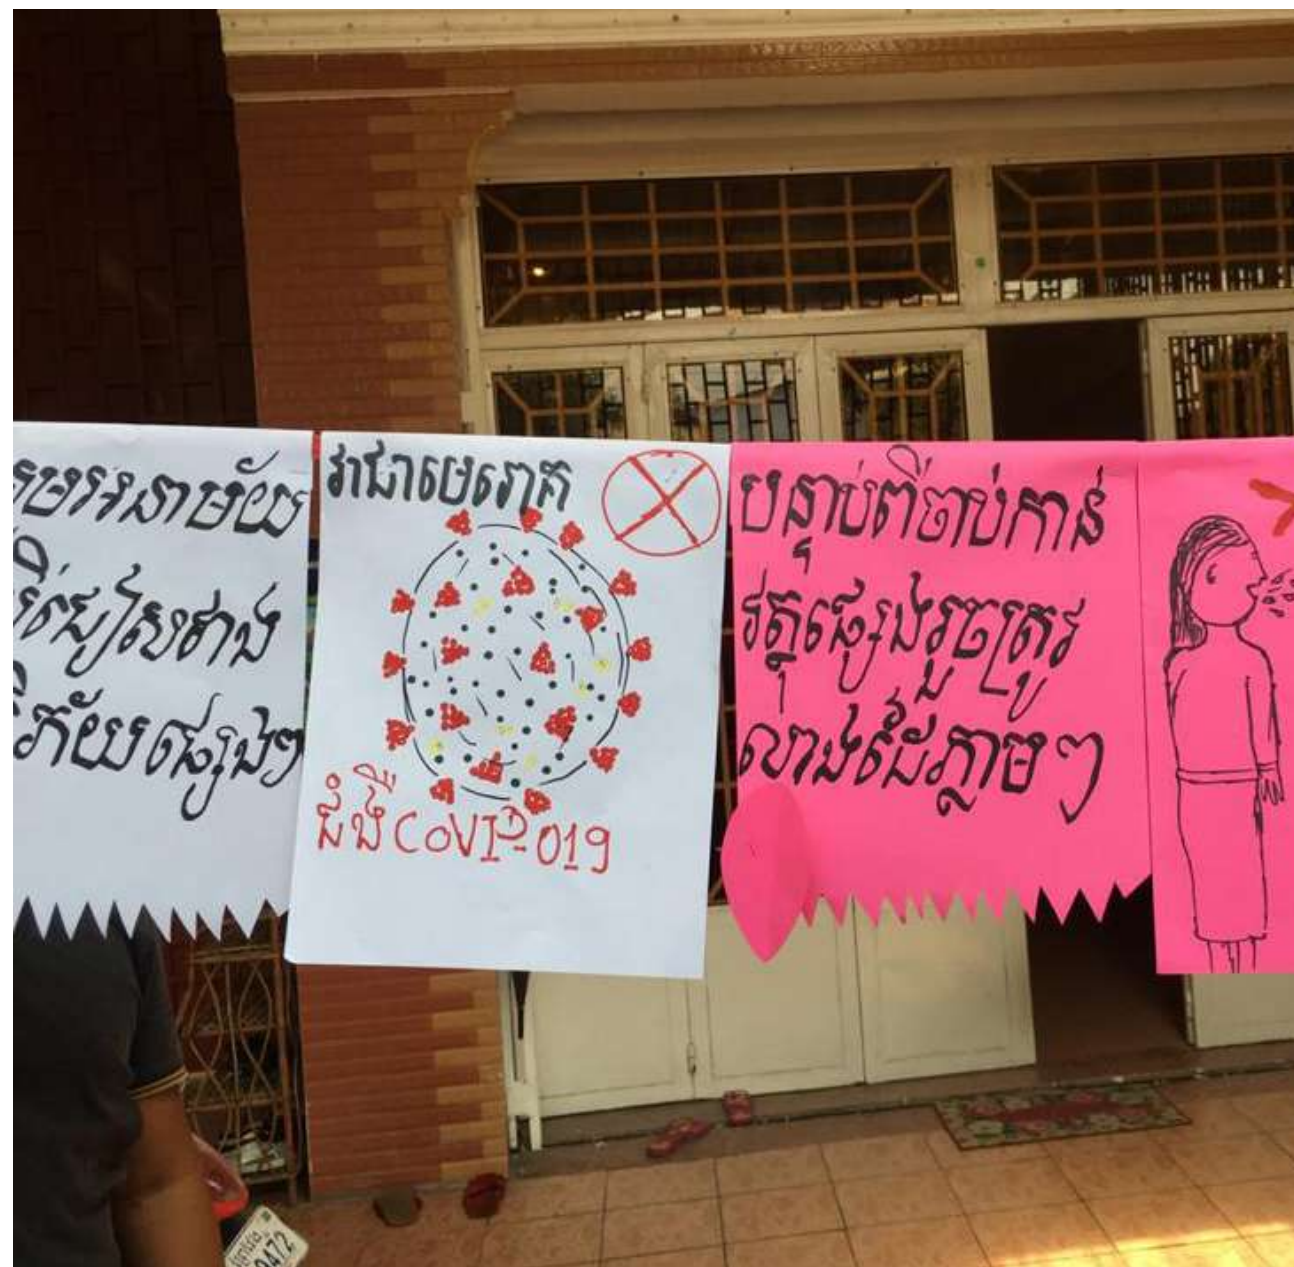 អនាម័យ
ជៀសវាង
ភ័យផ្សេងៗ
វាជាមេរោគ
ជំងឺ COVID-019
បន្ទាប់ពីចាប់កាន់
វត្ថុផ្សេងរួចត្រូវ
លាងដៃភ្លាមៗ